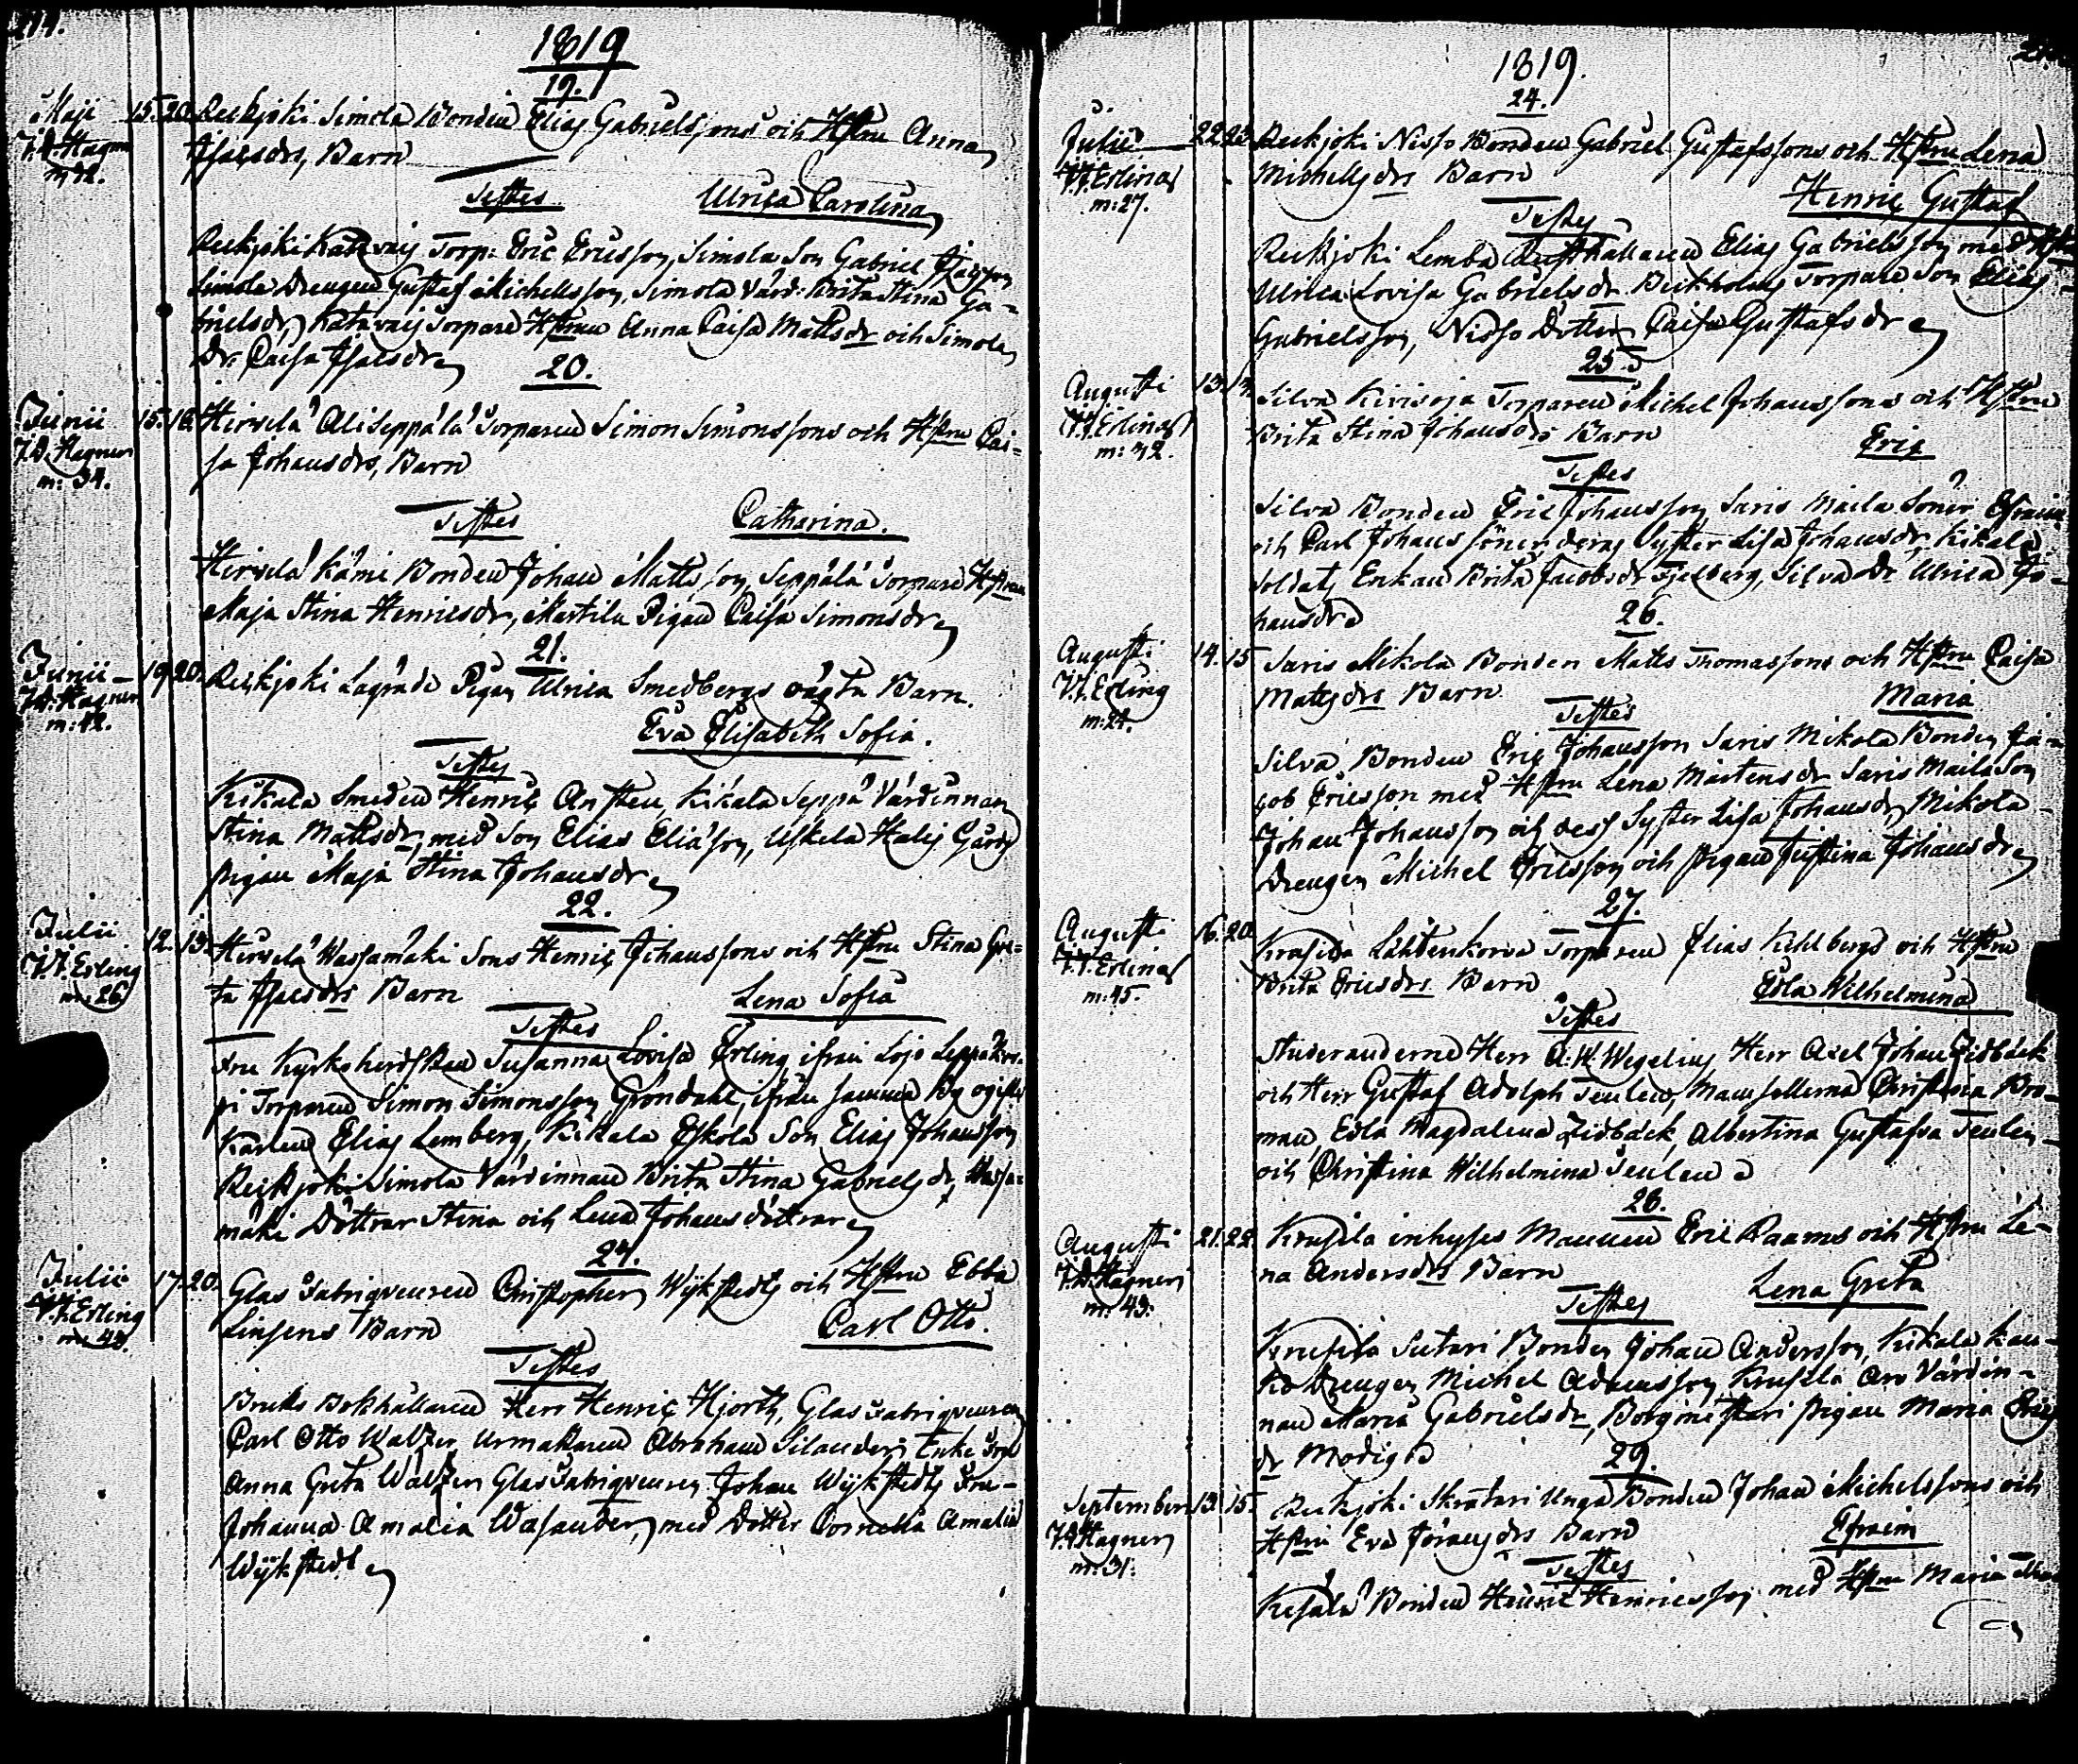 1819
19.
Maji 15. 20. Reckjoki Simola Bonden Elias Gabrielssons och Hstru Anna
J. D. Hagner
m: 32.
Isacsdrs, Barn
Testes Ulrica Carolina
Reckjoki Torp: Eric Ericsson, Simola Son Gabriel Isacsson
Simola Drengen Gustaf Michelsson, Simola Värd: Brita Stina Ga-
brielsdr, Torpare Hstrun Anna Caisa Mattsdr och Simola
Dr. Caisa Isacsdr
20.
Junii 15. 18. Hirvelä Ali Seppälä Torparen Simon Simonssons och Hstru Cai-
J. D. Hagner
m: 34.
sa Johansdrs, Barn
Testes Catharina.
Hirvelä Kämi Bonden Johan Mattsson, Seppälä Torpare Hstrun
Maja Stina Henricsdr, Marttila Pigan Caisa Simonsdr
21.
Junii 19. 20. Reckjoki Pigan Ulrica Smedbergs oägta Barn.
J. D. Hagner
m: 42.
Eva Elisabeth Sofia.
Testes
Kikala Smeden Henric Ansten, Kikala Seppä Värdinnan
Stina Mattsdr, med Son Elias Eliasson, Uskela Gårds
pigan Maja Stina Johansdr
22.
Julii 12. 13. Hirvelä Wassamäki Sons Henric Johanssons och Hstru Stina Gre-
J. J. Erling
m: 26
ta Isacsdrs Barn Lena Sofia
Testes
Fru Kyrkoherdskan Susanna Lovisa Erling ifrån Lojo
pi Torparen Simon Simonsson Gröndahl, ifrån samma By ogifte
Karlen Elias Lemberg, Kikala Eskola Son Elias Johansson
Reckjoki Simola Värdinnan Brita Stina Gabrielsdr, Wassa-
mäki Döttrar Stina och Lena Johansdöttrar
24.
Julii 17. 20. Glas Fabriqveuren Christopher Wijkstedts och Hstru Ebba
J. J. Erling
Linsens Barn Carl Otto.
Testes
Bruks Bokhållaren Herr Henric Hjorth, Glas Fabriqveuren
Carl Otto Waltzer, Urmakaren Abraham Silanders Enke Fru
Anna Greta Waltzer, Glas Fabriqveuren Johan Wijkstedts Fru
Johanna Amalia Wasander, med Dotter Cornelia Amalia
Wijkstedt
1819.
24.
Julii 22. 23. Reckjoki Nisso Bonden Gabriel Gustafssons och Hstru Lena
J. J. Erling
m: 27.
Michelsdrs Barn
Henric Gustaf
Testes
Reckjoki Lemba Elias Gabrielsson med Hstru
Ulrica Lovisa Gabrielsdr. Torpare Son Elias
Gabrielsson, Nisso Dotter Caisa Gustafsdr
25.
Augusti 13. Silva Kivioja Torparen Michel Johanssons och Hstru
J. J. Erling
m: 42.
Brita Stina Johansdrs Barn Eric
Testes
Silva Bonden Eric Johansson, Saris Maila Söner Efraim
och Carl Johans söner, deras Syster Lisa Johansdr, Kikala
Soldats Enkan Brita Jacobsdr Fjelberg, Silva Dr. Ulrica Jo-
hansdr
26.
Augusti 14. 15 Saris Mikola Bonden Matts Thomassons och Hstru Caisa
J. J. Erling
m: 24.
Mattsdrs Barn Maria
Testes
Silva Bonden Eric Johansson Saris Mikola Bonden Ja-
cob Ericsson med Hstru Lena Mårtensdr Saris Maila Son
Johan Johansson och dess Syster Lisa Johansdr, Mikola
Drengen Michel Ericsson och pigan Justina Johansdr
27.
Augusti 16. 20. Krusila Lähtenkorva Torparen Elias Kihlbergs och Hstru
J. J. Erling
m: 45.
Brita Ericsdrs Barn Edla Wilhelmina
Testes
Studeranderne Herr A. W. Wegelius Herr Axel Johan Zidbäck
och Herr Gustaf Adolph Teulen, Mamsellerna Christina Bro-
man, Edla Magdalena Zidbäck, Albertina Gustafva Teulen
och Christina Wilhelmina Teulen
28.
Augusti 21. 22. Krusila inhyses Mannen Eric Raamus och Hstru Le-
J. D. Hagner
m: 43.
na Andersdrs Barn Lena Greta
Testes
Krusila Sutari Bonden Johan Andersson, Kikala
Drengen Michel Adamsson Krusila Aro Värdin-
nan Maria Gabrielsdr, pigan Maria Erics
dr Modig
29.
September 13. 15. Reckjoki Skratari Unga Bonden Johan Michelssons och
J. D. Hagner
m: 31.
Hstru Eva Göransdrs Barn Efraim
Testes
Kesälä Bonden Henric Henricsson med Hstru Maria